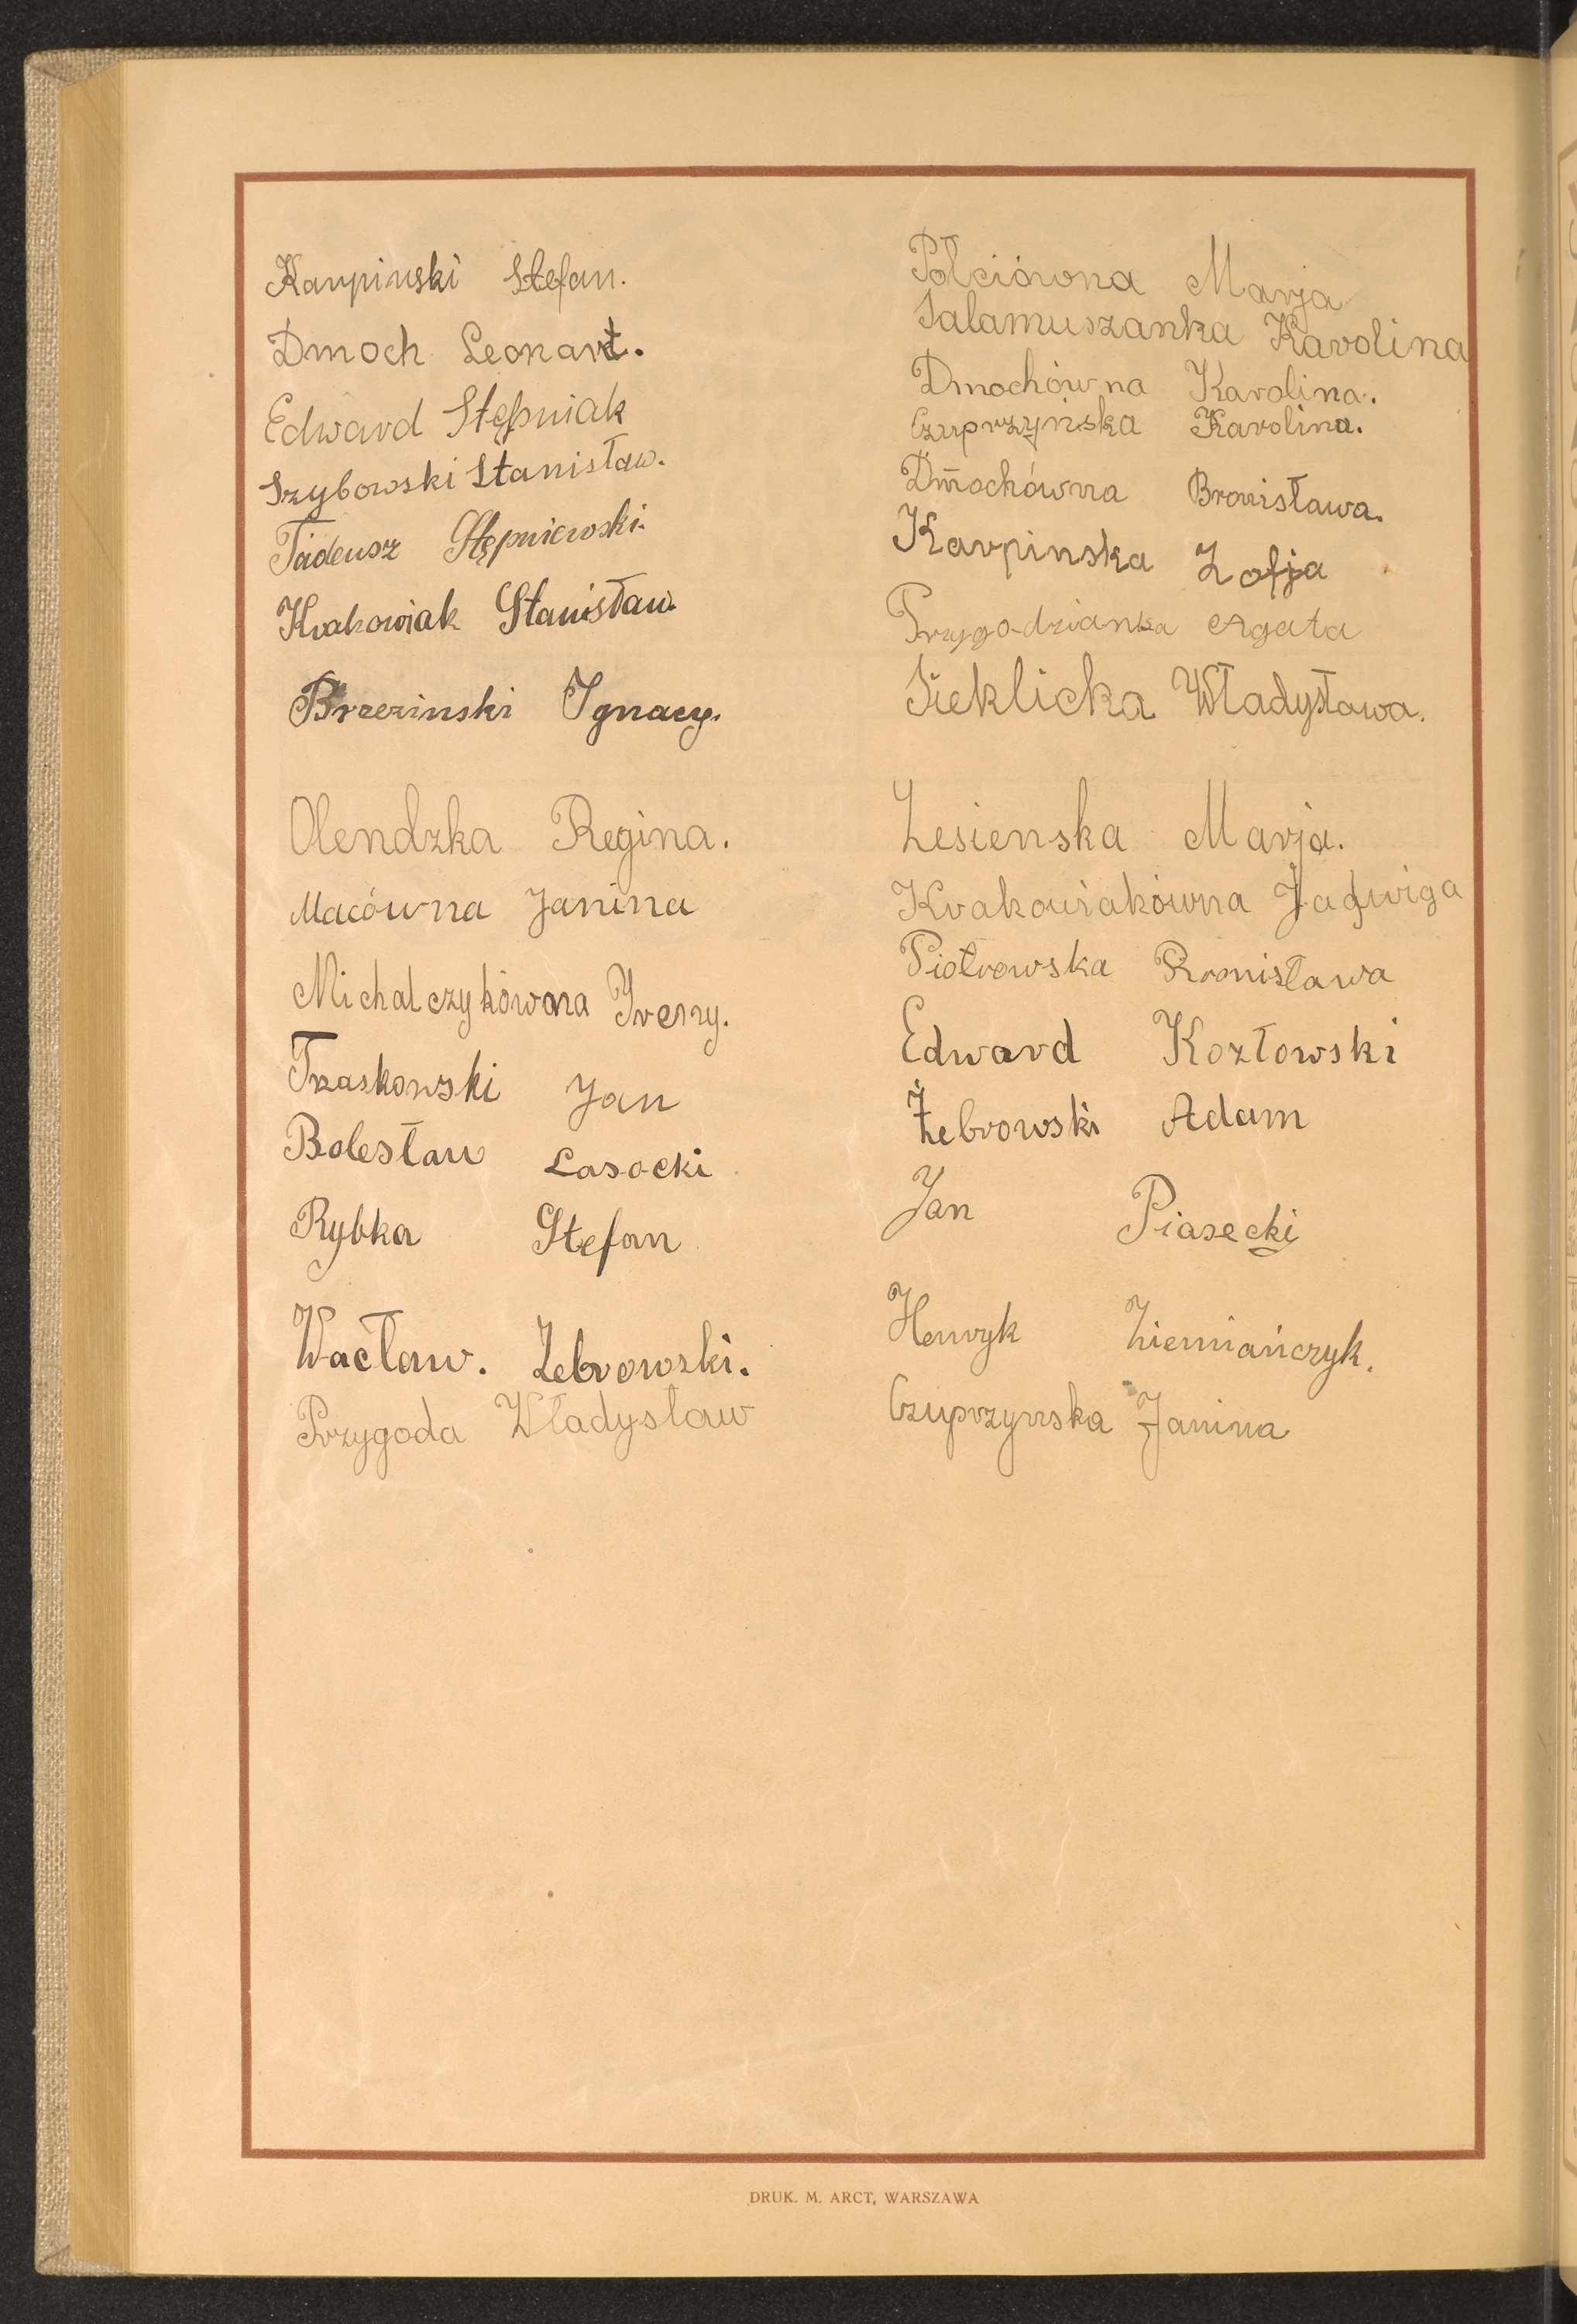 Karpinski Stefan.
Dmoch Leonart.
Edward Stępniak
Szybowski Stanisław.
Tadeusz Stępniewski.
Krakowiak Stanisław.
Brzezinski Ignacy.
Olendzka Regina.
Macówna Janina
Michalczykówna Ireny.
Trzaskowski Jan
Bolesław Lasocki
Rybka Stefan
Wacław. Żebrowski.
Przygoda Władysław
Połciówna Marja
Salamuszanka Karolina
Dmochówna Karolina.
Czuprzyńska Karolina.
Dmochówna Bronisława.
Karpinska Zofja
Przygodzianka Agata
Sieklicka Władysława.
Lesienska Marja.
Krakowiakówna Jadwiga
Piotrowska Bronisława
Edward Kozłowski
Żebrowski Adam
Jan Piasecki
Henryk Ziemiańczyk.
Czuprzynska Janina
DRUK. M. ARCT, WARSZAWA